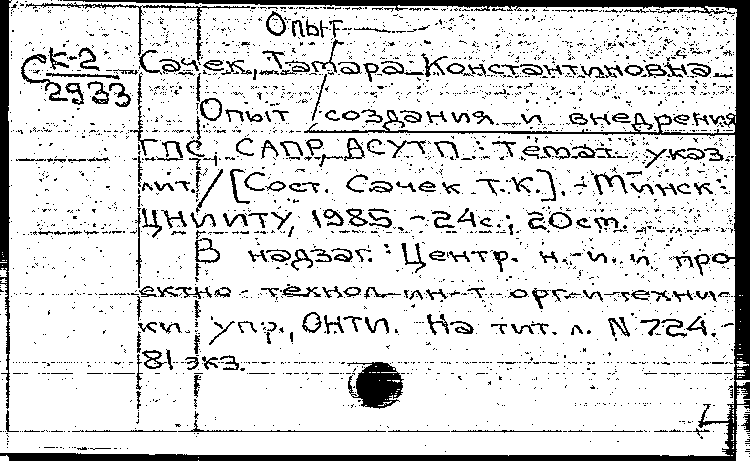 Опыт
С К-2
2933
Сачек, Тамара Константиновна
Опыт создания и внедрения
ГПС, САПР, АСУТП : Темат. указ.
лит. / [Сост. Сачек Т.К.]. - Минск :
ЦНИИТУ, 1985. - 24с.; 20см.
В надзаг. : Центр. н.-и. и про-
ектно-технол. ин-т орг. и техни-
ки упр., ОНТИ. На тит. л. N 724. -
81 экз.